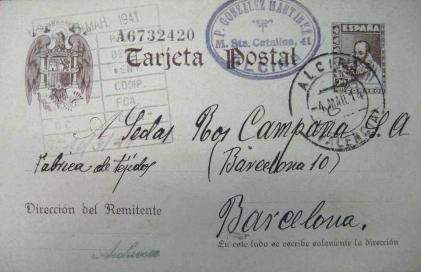 MAR. 1941
A6732420
P. GONZALEZ MARTINEZ
M. Sta. Catalina, 41
ESPAÑA
Tarjeta Postal
ALCIRA
4 MAR 14
VALENCIA
COMP.
A Sedas Ros Campaña S.A
Fabrica de tejidos
(Barcelona 10)
Dirección del Remitente
Barcelona.
En este lado se escribe solamente la dirección